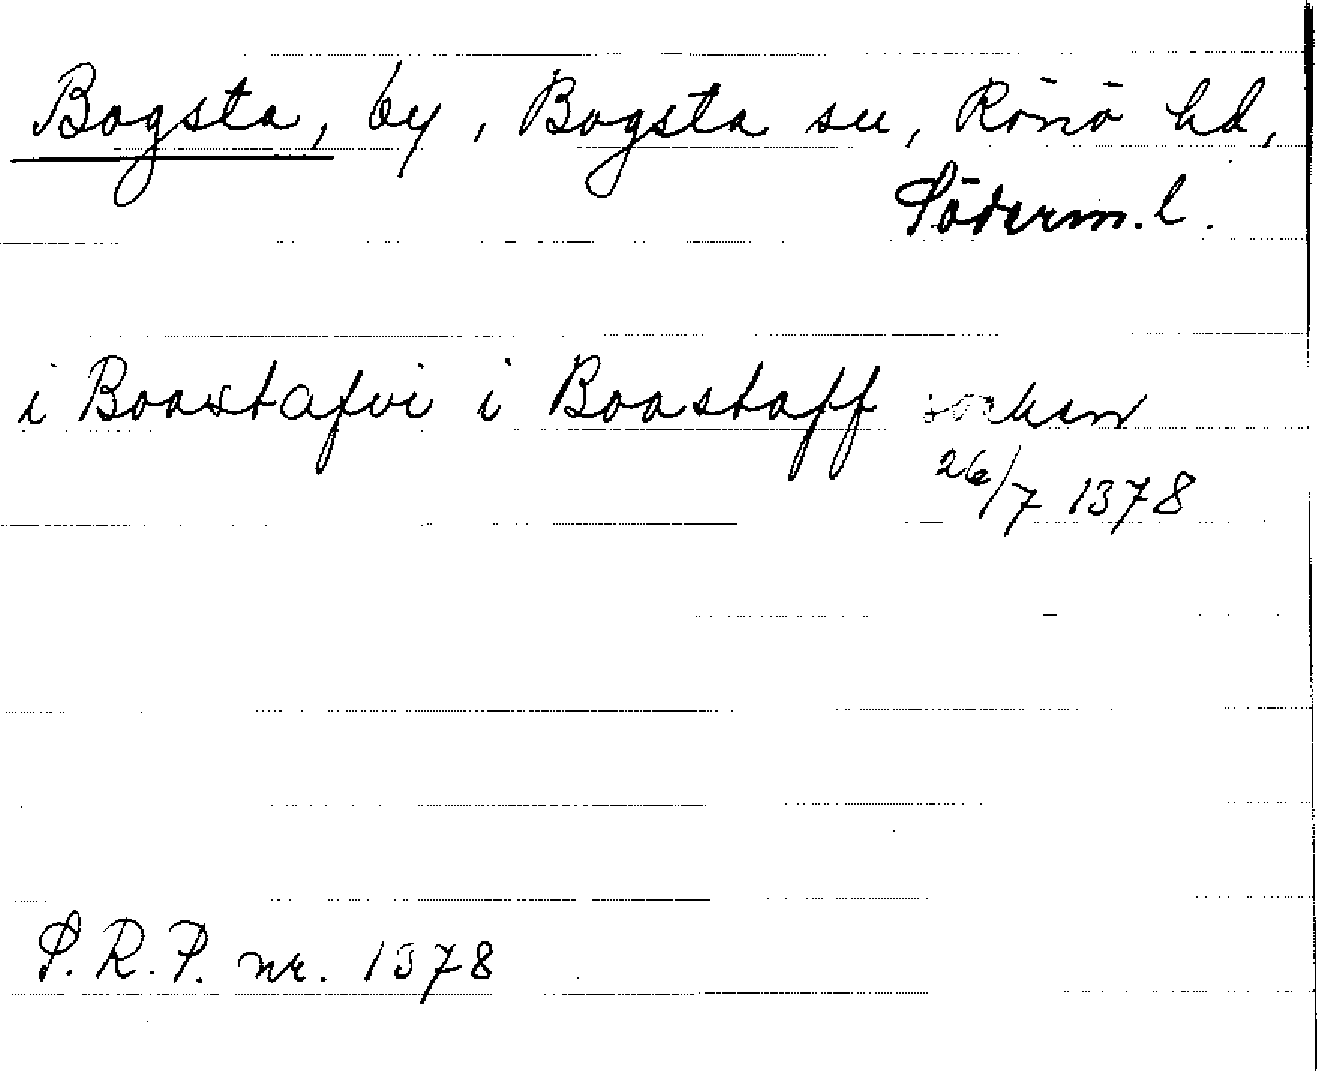 Bogsta, by, Bogsta sn, Rönö hd,
Söderm. l.
i Boastafwi i Boastaff soken
26/7 1378
S.R.P. nr. 1378